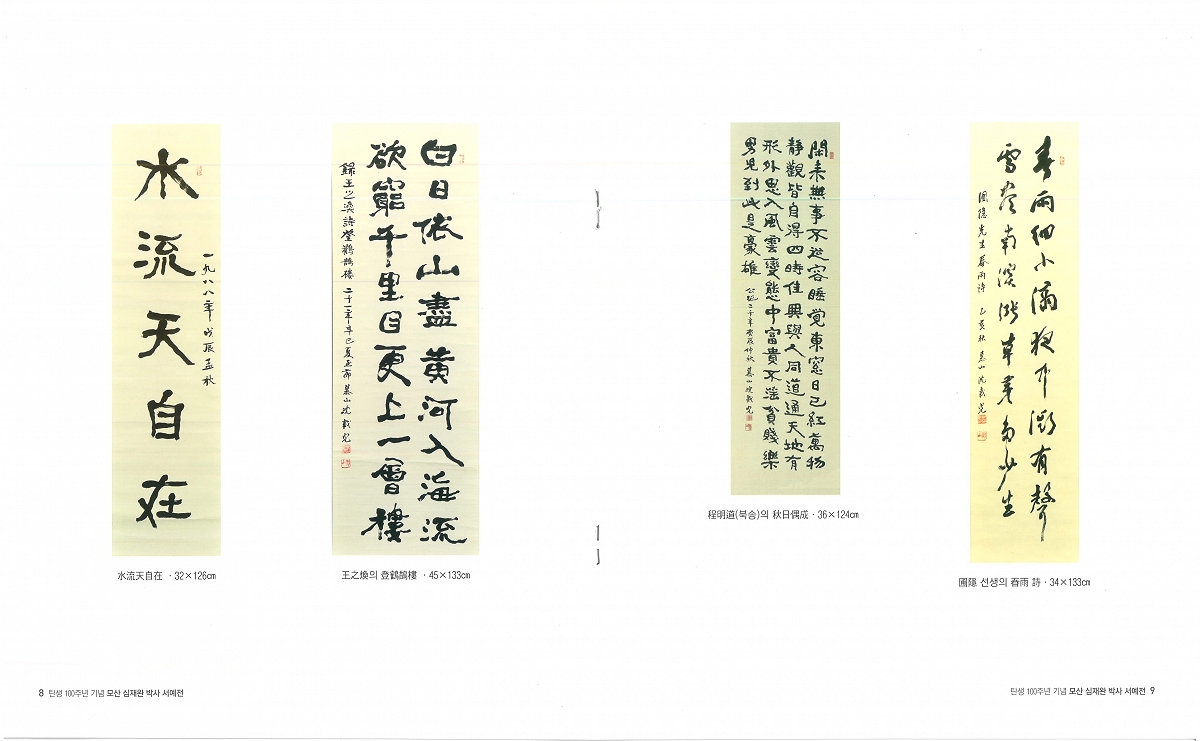 水流天自在
一九八八年 戊辰孟秋
水流天自在 · 32×126㎝
白日依山盡黃河入海流
欲窮千里目更上一層樓
錄王之渙詩登鸛鵲樓 二千一年辛巳夏至節 慕山 沈載完
王之煥의 登鶴鵲樓 · 45×133㎝
閑來無事不從容睡覺東窓日已紅萬物
靜觀皆自得四時佳興與人同道通天地有
形外思入風雲變態中富貴不淫貧賤樂
男兒到此是豪雄 公紀二千年庚辰仲秋 慕山沈載完
程明道(북송)의 秋日偶成 · 36×124㎝
春雨細不滴夜中微有聲
雪盡南溪漲草芽多少生
圃隱先生春雨詩 乙亥秋 慕山沈載完
圃隱 선생의 春雨 詩 · 34×133㎝
8 탄생 100주년 기념 모산 심재완 박사 서예전
탄생 100주년 기념 모산 심재완 박사 서예전 9